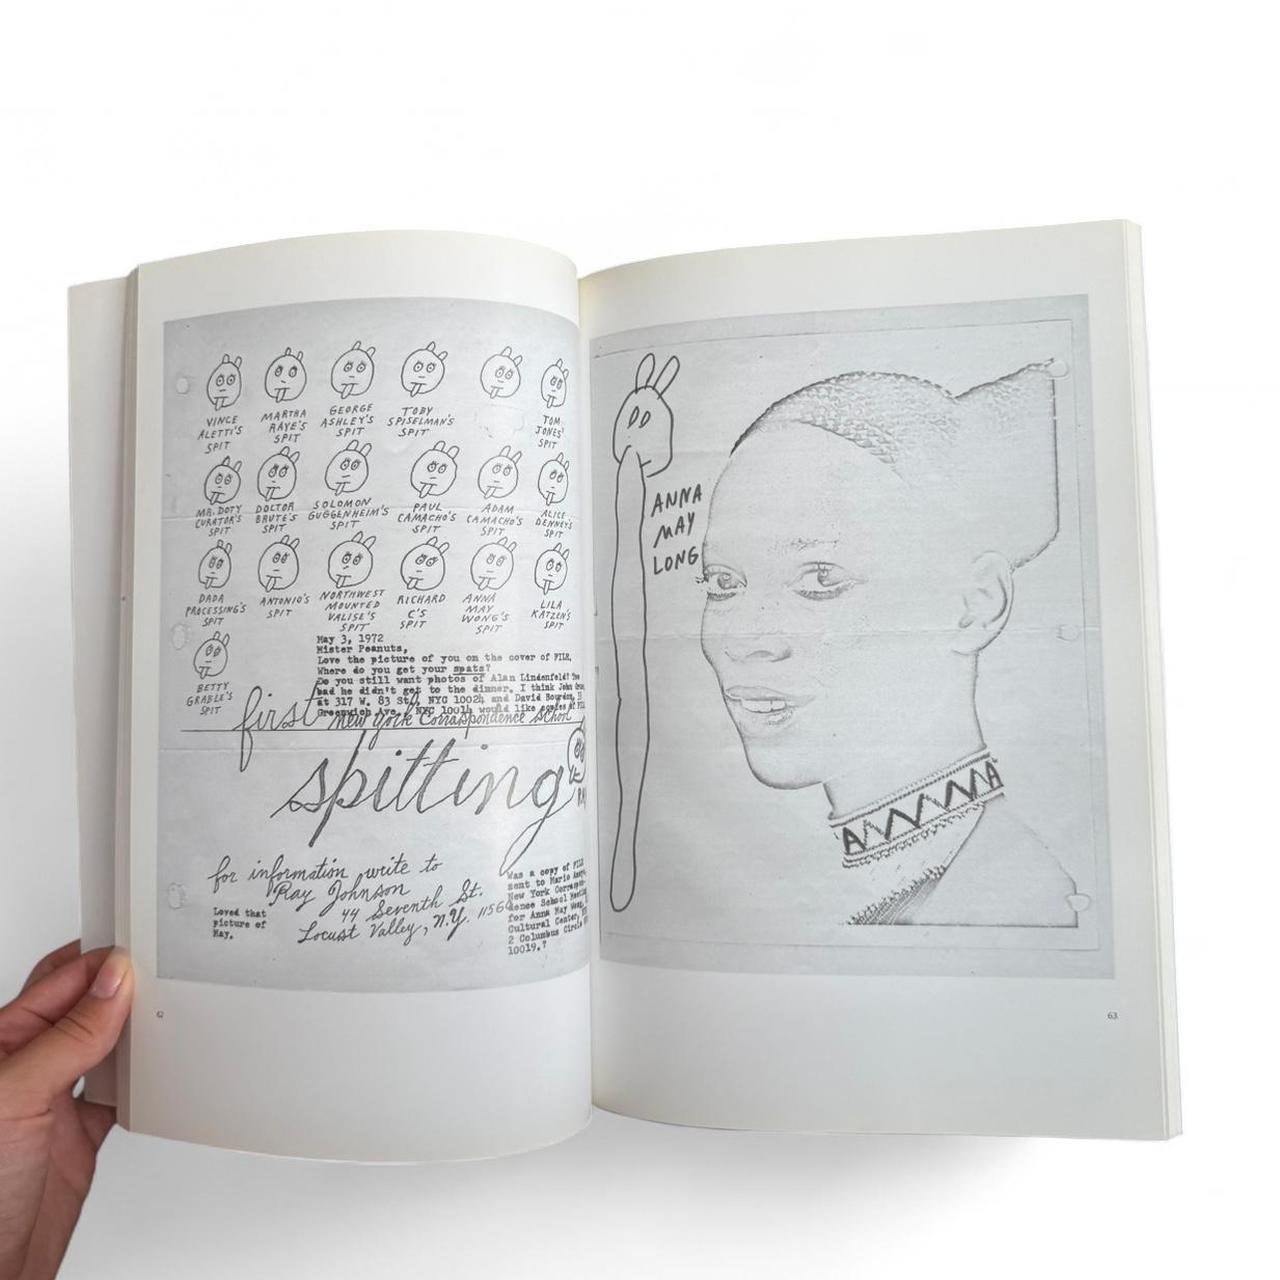 VINCE
ALETTI'S
SPIT
MARTHA
RAYE'S
SPIT
GEORGE
ASHLEY'S
SPIT
TOBY
SPISELMAN'S
SPIT
TOM
JONES'
SPIT
MR. DOTY
CURATOR'S
SPIT
DOCTOR
BRUTE'S
SPIT
SOLOMON
GUGGENHEIM'S
SPIT
PAUL
CAMACHO'S
SPIT
ADAM
CAMACHO'S
SPIT
ALICE
DENNEY'S
SPIT
DADA
PROCESSING'S
SPIT
ANTONIO'S
SPIT
NORTHWEST
MOUNTED
VALISE'S
SPIT
RICHARD
C'S
SPIT
ANNA
MAY
WONG'S
SPIT
LILA
KATZEN'S
SPIT
BETTY
GRABLE'S
SPIT
May 3, 1972
Mister Peanuts,
Love the picture of you on the cover of FILE,
Where do you get your spats?
Do you still want photos of Alan Lindenfeld? Too
bad he didn't get to the dinner. I think John
at 317 W. 83 St., NYC 10024 and David Bourdon,
Greenwich Ave., NYC 10014 would like copies of
first new york Correspondence School
spitting
for information write to
Ray Johnson
44 Seventh St.
Locust Valley, N.Y. 11560
Loved that
picture of
May.
Was a copy of FILE
sent to Mario
New York Correspon-
dence School Meeting
for Anna May Wong,
Cultural Center,
2 Columbus Circle
10019.?
62
ANNA
MAY
LONG
ANNA
63